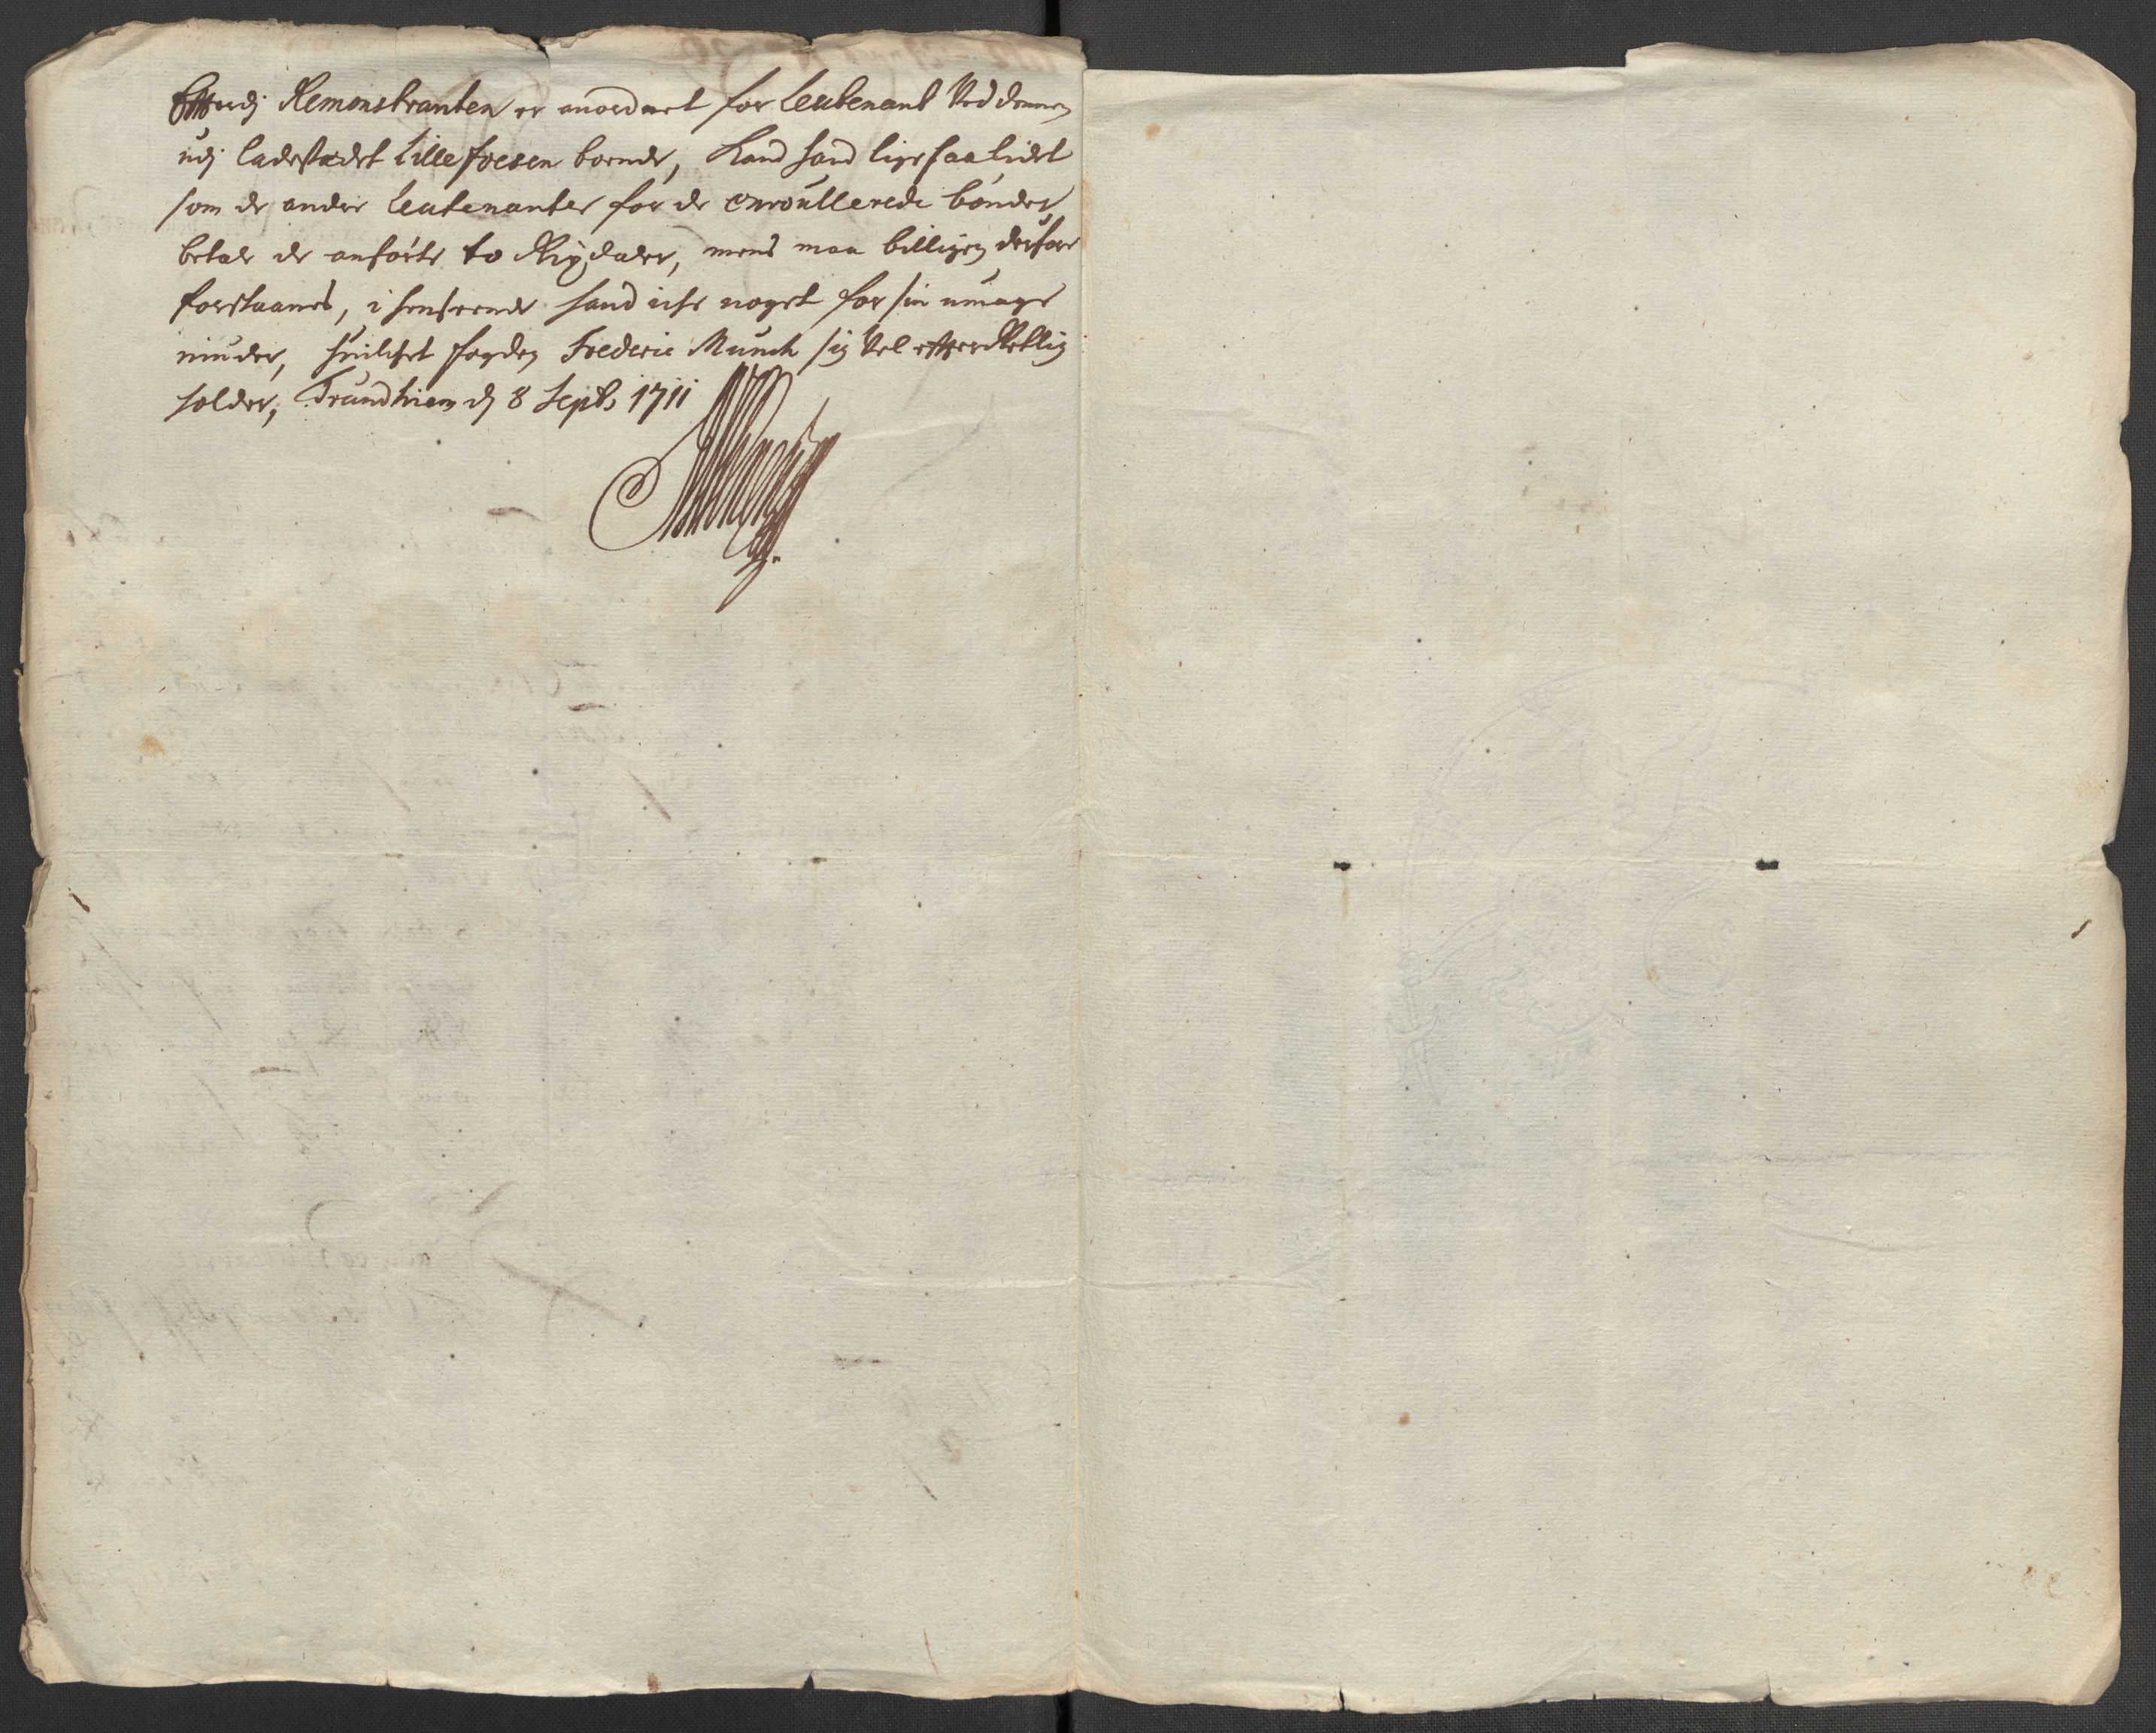 Efterdj Remonstranten er anordnet for Leutenant Ved dennem
udj ladestædet Lille Foesen boende, Kand hand lige saa lidet
som de andre Leutenanter for de enroullerede bønder
betale de anførte to Rixdaler, mens maa billigen derfore
forskaanes, i henseende hand iche noget for sin umage
niuder, huilchet fogden Frederic Munch sig Vel efterRettlig
holder, Trundhiem d 8 Septb 1711